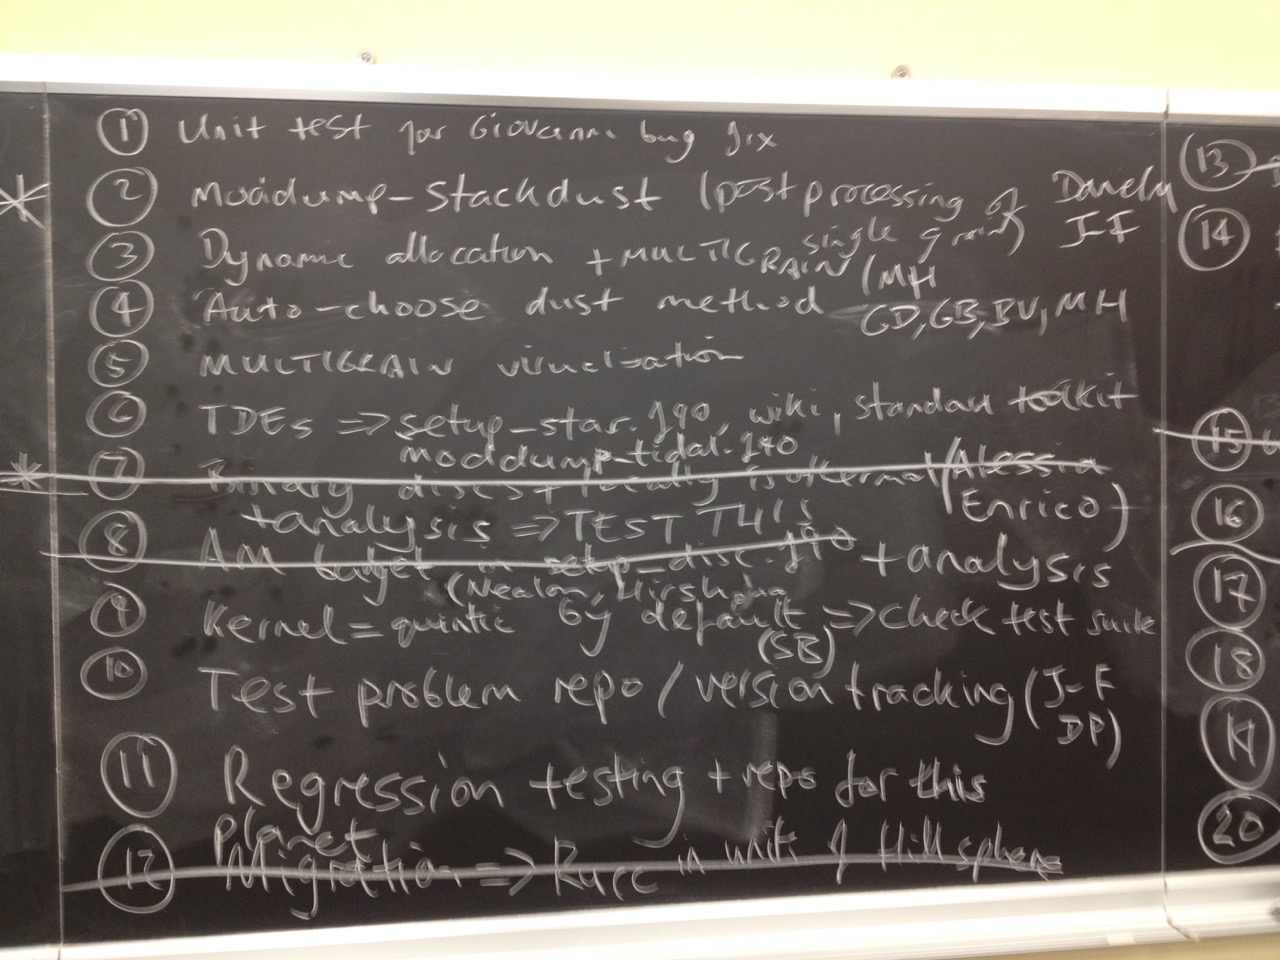 ① Unit test for Giovanni bug fix
* ② Moddump-stackdust (post processing of Daniel,
single grain) J-F
③ Dynamic allocation + MULTIGRAIN (MH
④ Auto-choose dust method GD, GB, BV, MH
⑤ MULTIGRAIN visualisation
⑥ TDEs ⇒ setup_star.f90, wiki, standard toolkit
moddump_tidal.f90
* ⑦ Binary discs + locally isothermal (Alessia
+analysis ⇒ TEST THIS Enrico)
⑧ AM budget in setup_disc.f90 + analysis
(Nealon,
⑨ Kernel = quintic by default ⇒ check test suite
(SB)
⑩ Test problem repo / version tracking (J-F
DP)
⑪ Regression testing + repo for this
Planet
⑫ Migration ⇒ Racc in units of Hill sphere
⑬
⑭
⑮
⑯
⑰
⑱
⑲
⑳